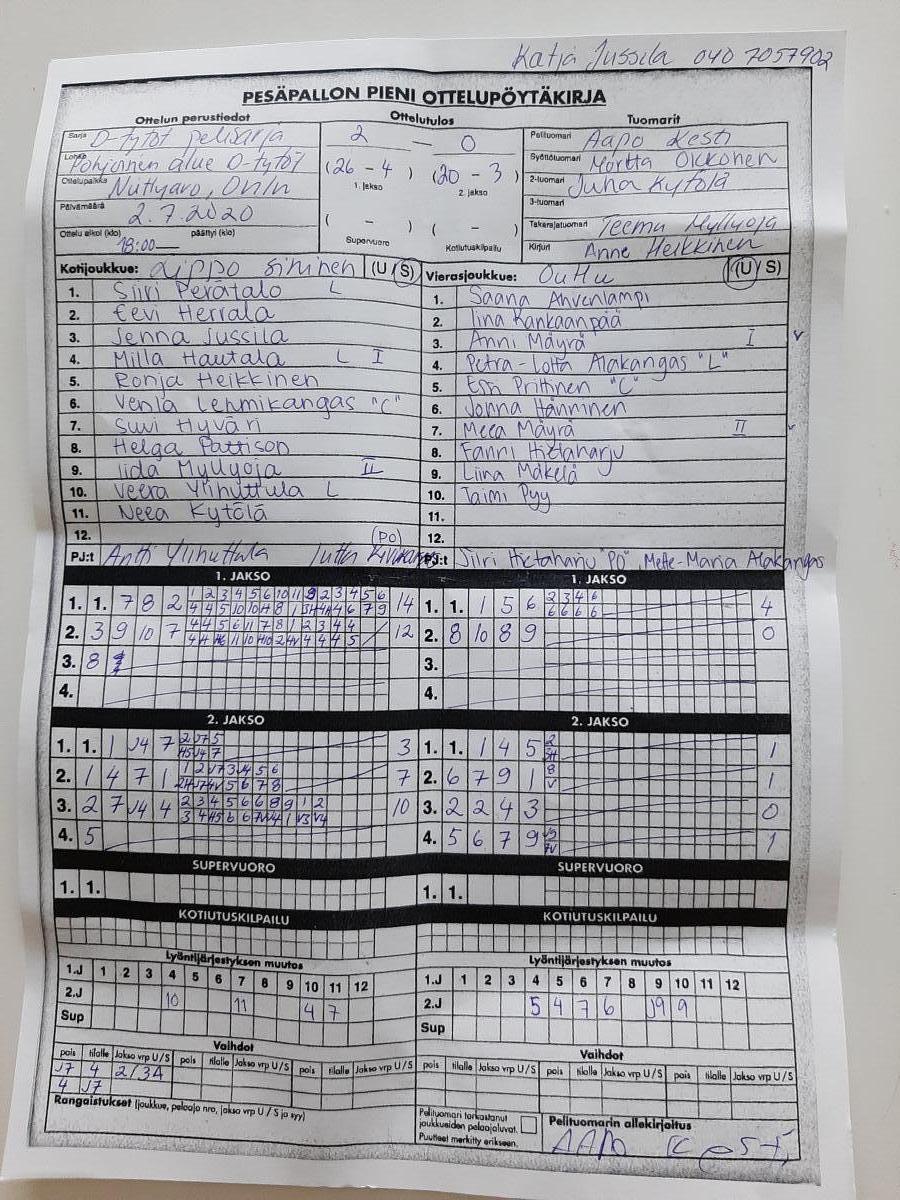 Katja Jussila 040 7057902
PESÄPALLON PIENI OTTELUPÖYTÄKIRJA
Ottelun perustiedot Ottelutulos Tuomarit
Sarja D-tytöt pelisarja 2 — 0 Pelituomari Aapo Kesti
Lohko Pohjoinen alue D-tytöt (26 - 4) (20 - 3) Syöttötuomari Martta Okkonen
1. jakso 2. jakso
Ottelupaikka 2-tuomari Juha Kytölä
Päivämäärä 2.7.2020 3-tuomari
( - ) ( - ) Takarajatuomari Teemu Myllyoja
Ottelu alkoi (klo) 18:00 päättyi (klo) Supervuoro Kotiutuskilpailu Kirjuri Anne Heikkinen
Kotijoukkue: Lippo Sininen (U/S) Vierasjoukkue: OuHu (U/S)
1. Siiri Perätalo L 1. Saana Ahvenlampi
2. Eevi Herrala 2. Iina Kankaanpää
3. Jenna Jussila 3. Anni Mäyrä I
4. Milla Hautala L I 4. Petra-Lotta Alakangas "L"
5. Ronja Heikkinen 5. Essi Prittinen "C"
6. Venla Lehmikangas "C" 6. Jonna Hänninen
7. Suvi Hyväri 7. Meea Mäyrä II
8. Helga Pattison 8. Fanni Hietaharju
9. Iida Myllyoja II 9. Liina Mäkelä
10. Veera Ylihuttula L 10. Taimi Pyy
11. Neea Kytölä 11.
12. (PO) 12.
PJ:t Antti Ylihuttula Jutta PJ:t Siiri Hietaharju "PO", Mette-Maria Alakangas
1. JAKSO 1. JAKSO
1. 1. 7 8 2 14 1. 1. 1 5 6 2 3 4 6 4
6 6 6 6
2. 3 9 10 7 12 2. 8 10 8 9 0
3. 8 3.
4. 4.
2. JAKSO 2. JAKSO
1. 1. 1 J4 7 2 J7 5 3 1. 1. 1 4 5 2 1
2. 1 4 7 1 1 2 J7 3 J4 5 6 7 2. 6 7 9 1 8 1
V
3. 2 7 J4 4 2 3 4 5 6 6 8 9 1 2 10 3. 2 2 4 3 0
4. 5 4. 5 6 7 9 J9 1
7V
SUPERVUORO SUPERVUORO
1. 1. 1. 1.
KOTIUTUSKILPAILU KOTIUTUSKILPAILU
Lyöntijärjestyksen muutos Lyöntijärjestyksen muutos
1.J 1 2 3 4 5 6 7 8 9 10 11 12 1.J 1 2 3 4 5 6 7 8 9 10 11 12
2.J 10 11 4 7 2.J 5 4 7 6 J9 9
Sup Sup
Vaihdot Vaihdot
pois tilalle Jakso vrp U/S pois tilalle Jakso vrp U/S pois tilalle Jakso vrp U/S pois tilalle Jakso vrp U/S pois tilalle Jakso vrp U/S pois tilalle Jakso vrp U/S
J7 4 2/3A
4 J7
Rangaistukset (joukkue, pelaaja nro, jakso vrp U / S ja syy) Pelituomari tarkastanut joukkueiden pelaajaluvat. Puutteet merkitty erikseen. Pelituomarin allekirjoitus
AAPO Kesti